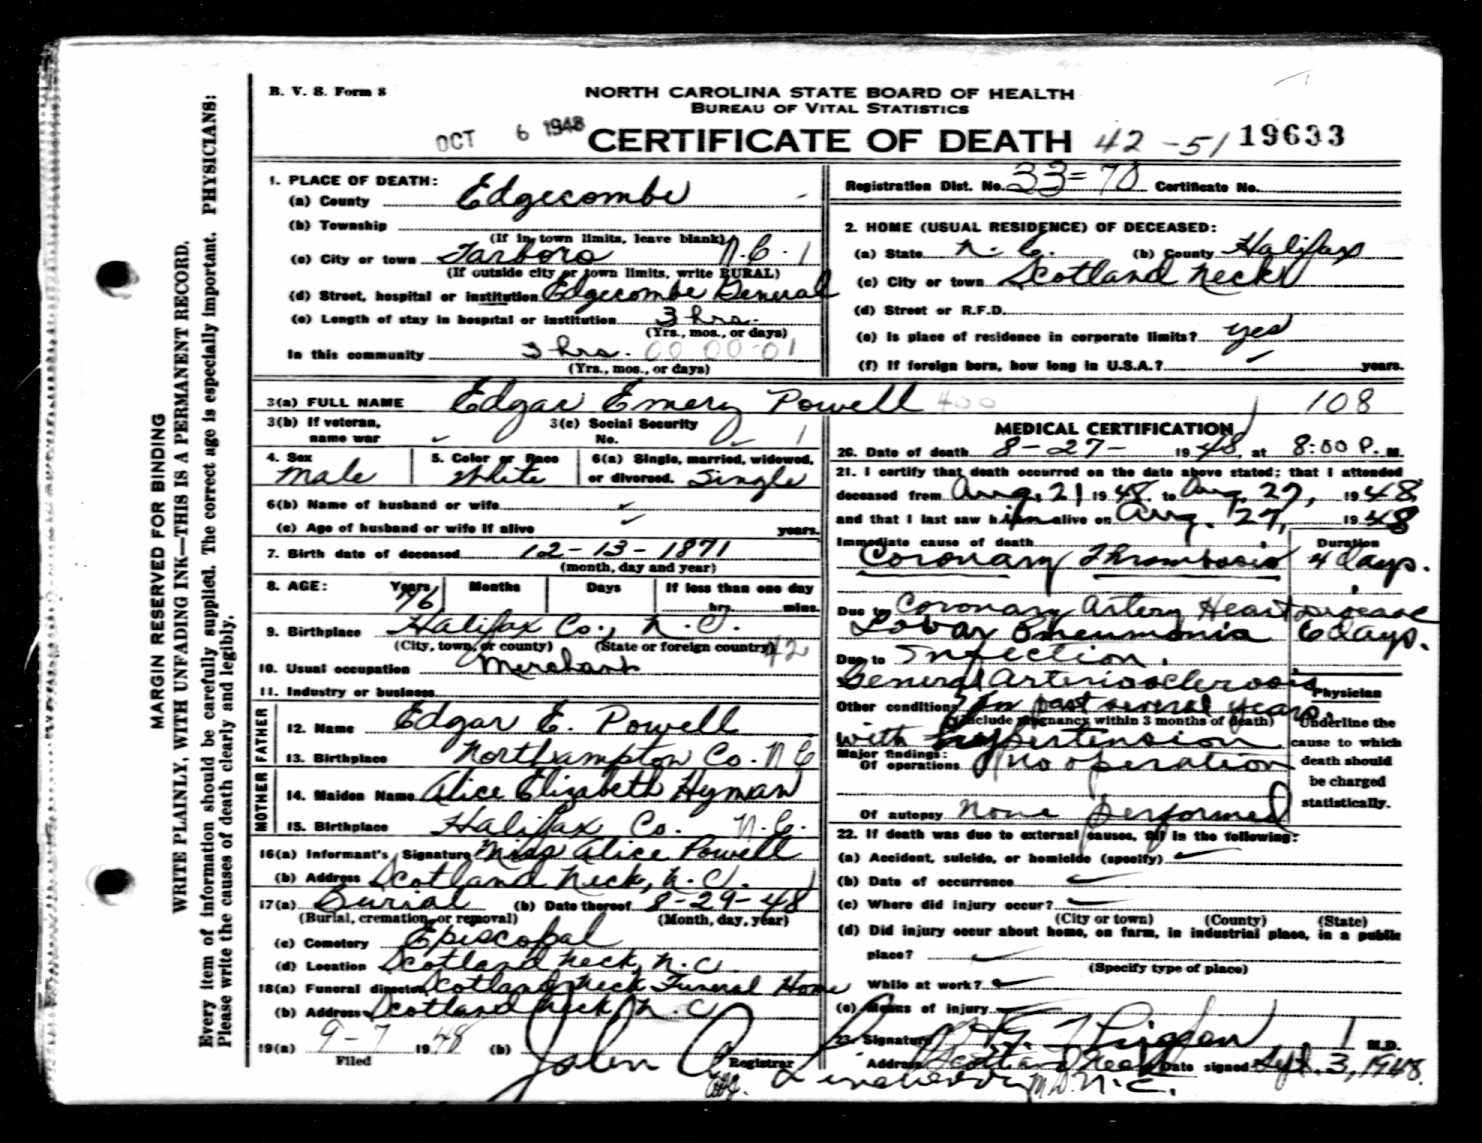 B. V. S. Form 8
NORTH CAROLINA STATE BOARD OF HEALTH
BUREAU OF VITAL STATISTICS
OCT 6 1948
CERTIFICATE OF DEATH 42-51 19633
MARGIN RESERVED FOR BINDING
WRITE PLAINLY, WITH UNFADING INK—THIS IS A PERMANENT RECORD.
Every item of information should be carefully supplied. The correct age is especially important. PHYSICIANS:
Please write the causes of death clearly and legibly.
1. PLACE OF DEATH:
(a) County Edgecombe
(b) Township
(If in town limits, leave blank)
(c) City or town Tarboro N.C. 1
(If outside city or town limits, write RURAL)
(d) Street, hospital or institution Edgecombe General
(e) Length of stay in hospital or institution 3 hrs.
(Yrs., mos., or days)
In this community 3 hrs. 00 00-01
(Yrs., mos., or days)
Registration Dist. No. 33-70 Certificate No.
2. HOME (USUAL RESIDENCE) OF DECEASED:
(a) State N.C. (b) County Halifax
(c) City or town Scotland Neck
(d) Street or R.F.D.
(e) Is place of residence in corporate limits? yes
(f) If foreign born, how long in U.S.A.? years.
3(a) FULL NAME Edgar Emery Powell 400 108
3(b) If veteran, name war
3(c) Social Security No. 1
4. Sex Male
5. Color or Race White
6(a) Single, married, widowed, or divorced. Single
6(b) Name of husband or wife
(c) Age of husband or wife if alive years.
7. Birth date of deceased 12-13-1871
(month, day and year)
8. AGE: Years 76 Months Days If less than one day hrs. mins.
9. Birthplace Halifax Co., N.C.
(City, town, or county) (State or foreign country) 42
10. Usual occupation Merchant
11. Industry or business
FATHER
12. Name Edgar E. Powell
13. Birthplace Northampton Co. N C
MOTHER
14. Maiden Name Alice Elizabeth Hyman
15. Birthplace Halifax Co. N.C.
16(a) Informant's Signature Miss Alice Powell
(b) Address Scotland Neck, N.C.
17(a) Burial (b) Date thereof 8-29-48
(Burial, cremation, or removal) (Month, day, year)
(c) Cemetery Episcopal
(d) Location Scotland Neck, N.C.
18(a) Funeral director Scotland Neck Funeral Home
(b) Address Scotland Neck, N.C.
19(a) 9-7 1948 (b) John
Filed Registrar
MEDICAL CERTIFICATION
20. Date of death 8-27- 1948, at 8:00 P. M.
21. I certify that death occurred on the date above stated; that I attended
deceased from Aug. 21 1948. to Aug. 27, 1948
and that I last saw him alive on Aug. 27, 1948
Immediate cause of death Duration
Coronary Thrombosis 4 days.
Due to Coronary Artery Heart disease
Lobar Pneumonia 6 days.
Due to Infection.
General Arteriosclerosis
Other conditions for past several years.
(Include pregnancy within 3 months of death)
with hypertension
Major findings:
Of operations No operation
Of autopsy None performed
Physician
Underline the
cause to which
death should
be charged
statistically.
22. If death was due to external causes, fill in the following:
(a) Accident, suicide, or homicide (specify)
(b) Date of occurrence
(c) Where did injury occur?
(City or town) (County) (State)
(d) Did injury occur about home, on farm, in industrial place, in a public
place?
(Specify type of place)
While at work?
(e) Means of injury
23. Signature M.D.
Address Scotland Neck, N.C. Date signed Sept. 3, 1948.